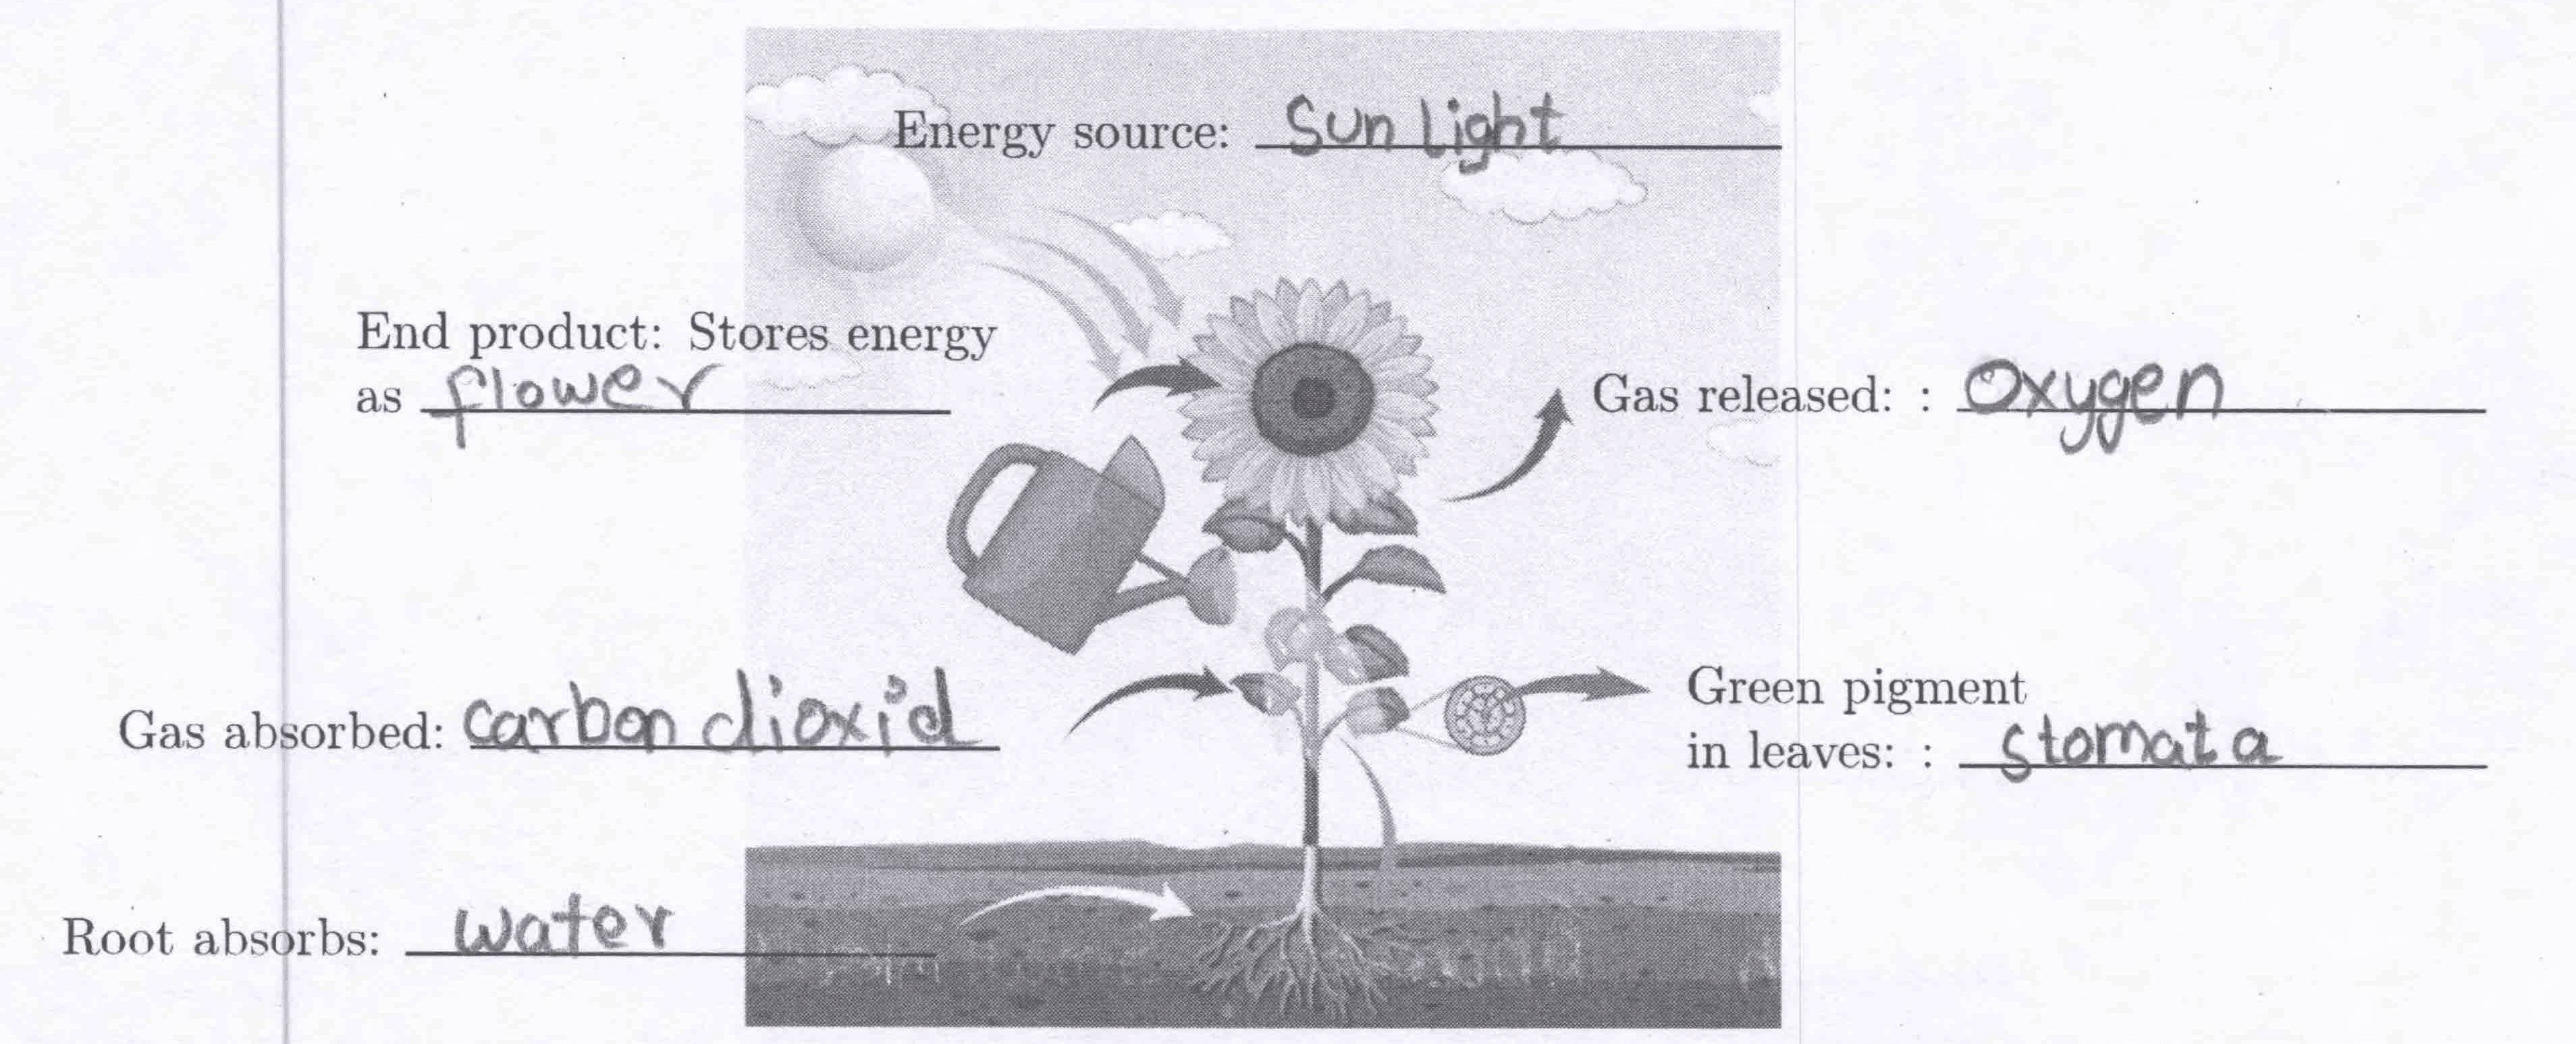 Energy source: Sun light
End product: Stores energy
as flower
Gas released: : Oxygen
Gas absorbed: carbon dioxid
Green pigment
in leaves: : stomata
Root absorbs: water